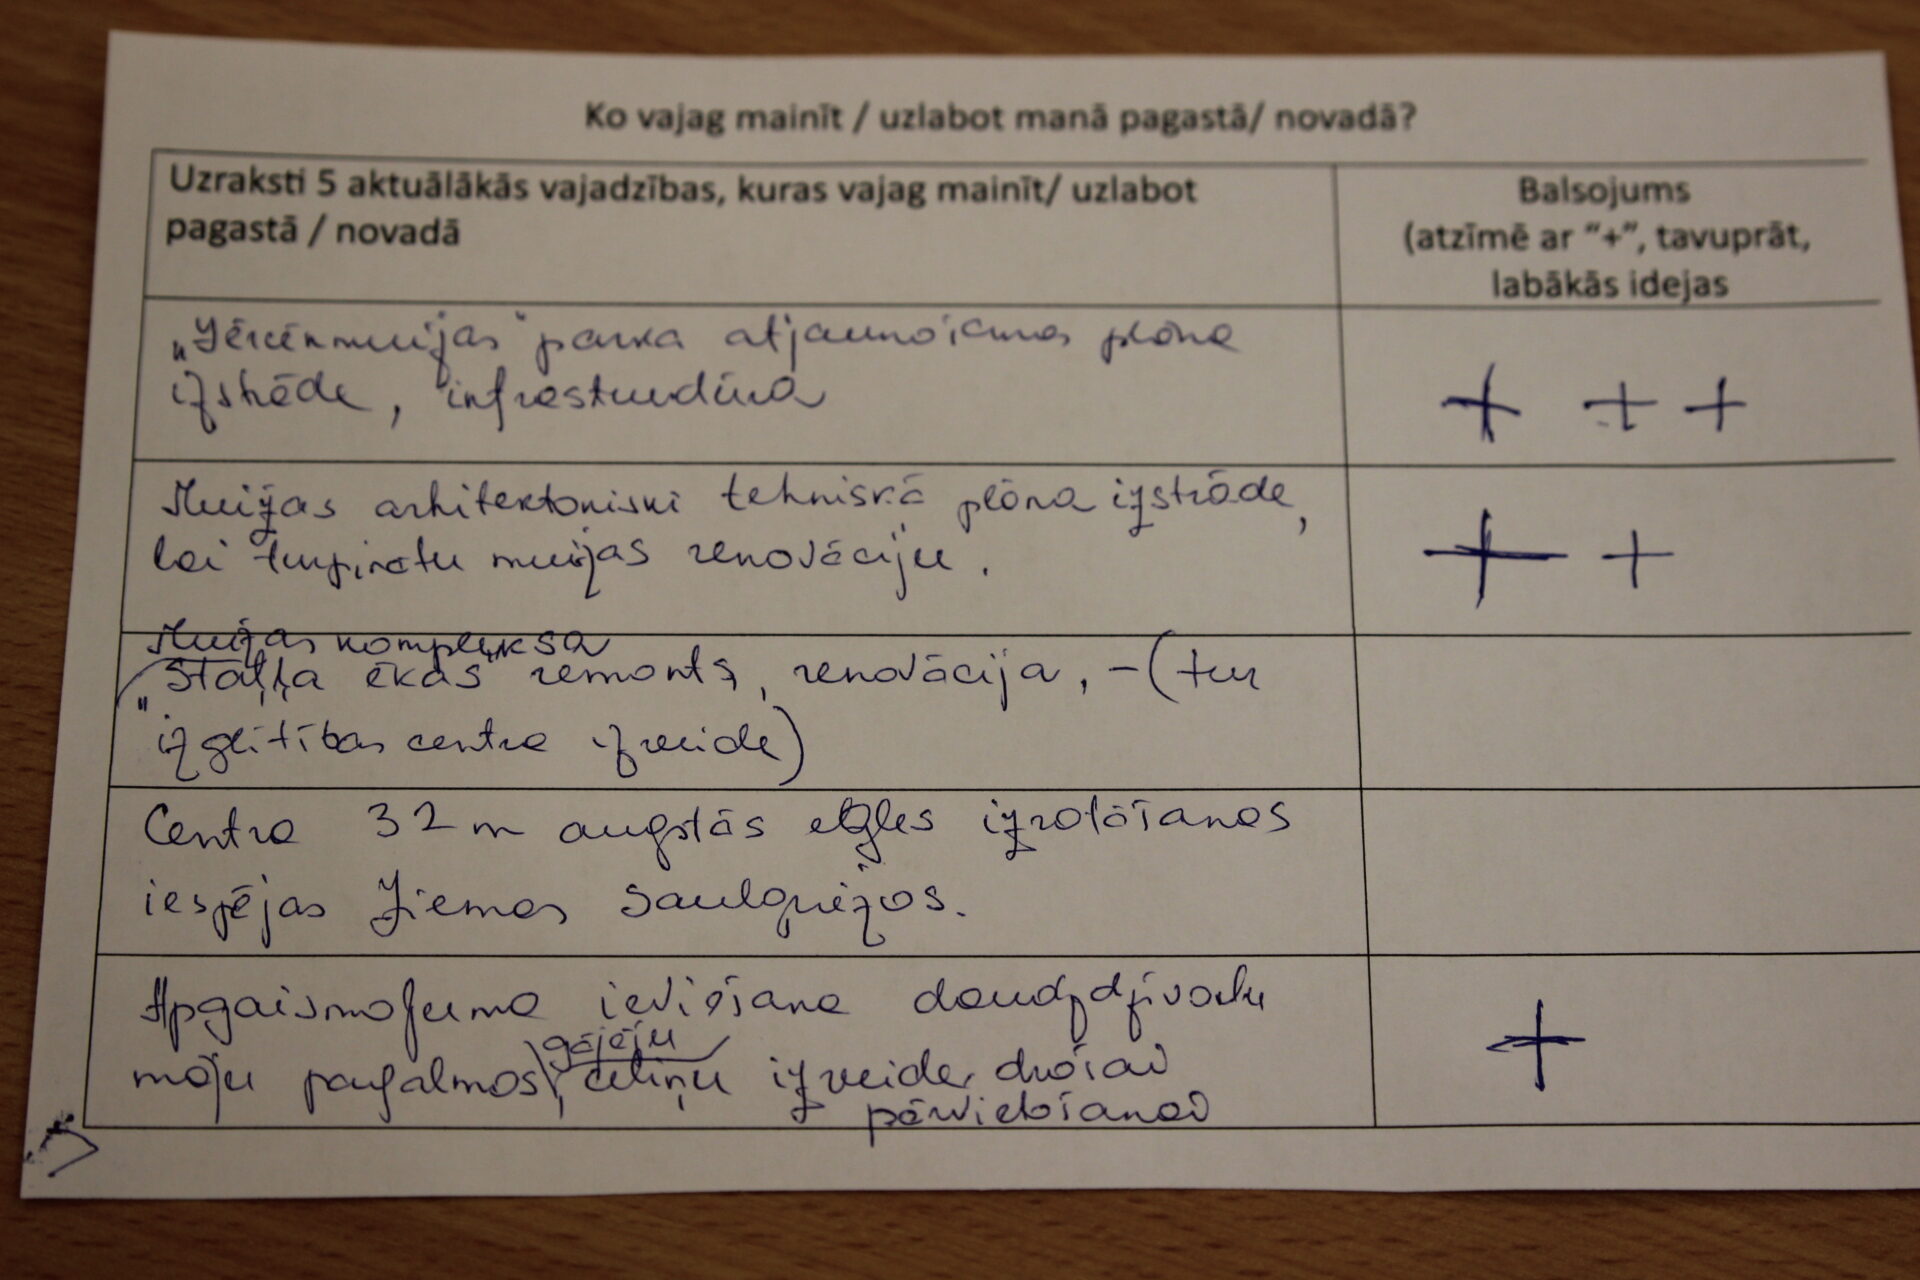 Ko vajag mainīt / uzlabot manā pagastā/ novadā?
Uzraksti 5 aktuālākās vajadzības, kuras vajag mainīt/ uzlabot
pagastā / novadā
Balsojums
(atzīmē ar “+”, tavuprāt,
labākās idejas
„Jērcēnmuižas" parka atjaunošanas plāna
izstrāde, infrastruktūra
+ + +
Muižas arhitektoniski tehniskā plāna izstrāde,
lai turpinātu muižas renovāciju.
+ +
Muižas kompleksa
"Staļļa ēkas" remonts, renovācija, - (tur
izglītības centra izveide)
Centra 32 m augstās egles izrotāšanas
iespējas Ziemas Saulgriežos.
Apgaismojuma ieviešana daudzdzīvokļu
māju pagalmos, gājēju celiņu izveide, drošai
pārvietošanai
+